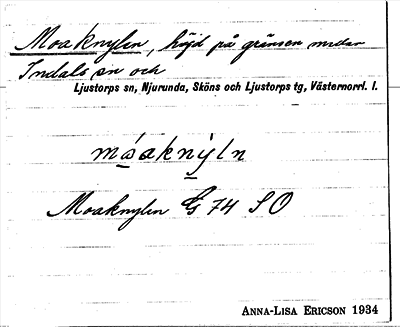 Moaknylen, höjd på gränsen mellan
Indals sn och
Ljustorps sn, Njurunda, Sköns och Ljustorps tg, Västernorrl. l.
móaknỳln
Moaknylen G 74 SO
ANNA-LISA ERICSON 1934